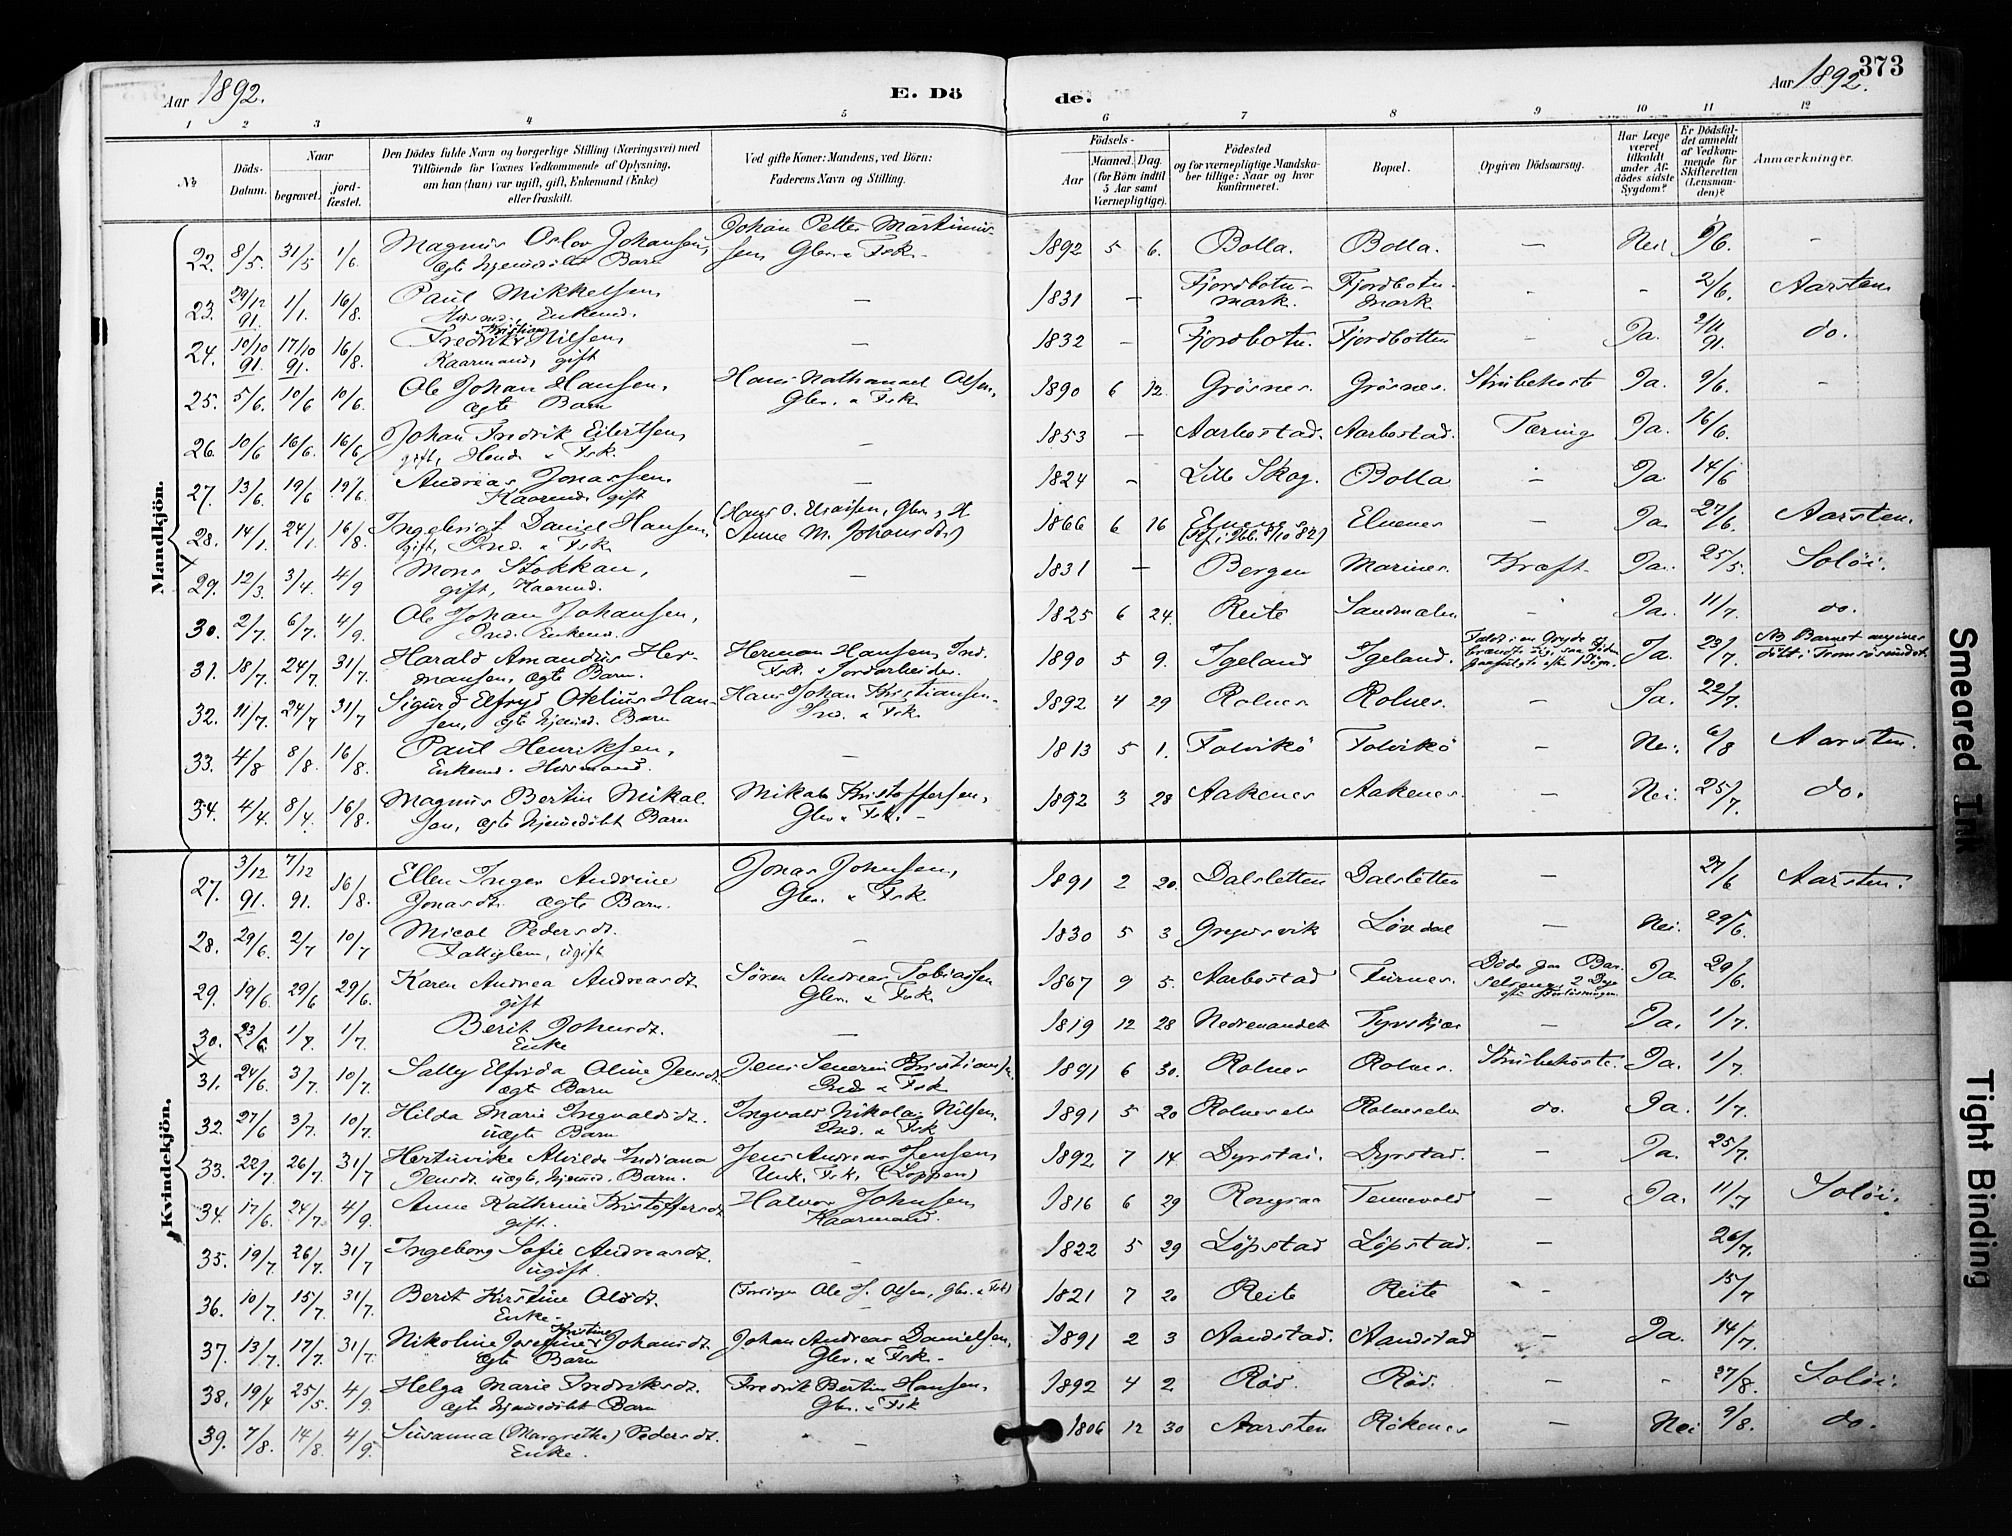 Aar 1892.
E. Dö
de.
Aar 1892.
373
1 2 3 4 5 6 7 8 9 10 11 12
№
Döds-Datum.
Naar
begravet.
jord-fæstet.
Den Dödes fulde Navn og borgerlige Stilling (Næringsvei) med Tilföiende for Voxnes Vedkommende af Oplysning, om han (hun) var ugift, gift, Enkemand (Enke) eller fraskilt.
Ved gifte Koner: Mandens, ved Börn: Faderens Navn og Stilling.
Födsels-
Aar
Maaned. Dag.
(for Börn indtil 5 Aar samt Værnepligtige).
Födested og for værnepligtige Mandskaber tillige: Naar og hvor konfirmeret.
Bopæl.
Opgiven Dödsaarsag.
Har Læge været tilkaldt under Afdödes sidste Sygdom?
Er Dödsfaldet anmeldt af Vedkommende for Skifteretten (Lensmanden)?
Anmærkninger.
Mandkjön.
22. 8/5. 31/5 1/6. Magnus Oslov Johansen, ægte hjemedöbt Barn Johan Petter Martinussen, Gbr. & Fsk. 1892 5 6. Bolla. Bolla. — Nei. 9/6. -
23. 29/12 91. 1/1. 16/8. Paul Mikkelsen, Husmd., Enkemd. — 1831 — Fjordbotn-mark. Fjordbotn-mark - - 2/6. Aarsten
24. 10/10 91. 17/10 91. 16/8. Fredrik Kristian Nilsen, Kaarmand, gift — 1832 — Fjordbotn. Fjordbotten - Ja. 2/11 91. do.
25. 5/6. 10/6 10/6. Ole Johan Hansen, ægte Barn Hans Nathanael Olsen, Gbr. & Fsk. 1890 6 12. Grösnes. Grösnes. Strubehoste Ja. 9/6. -
26. 10/6 16/6. 16/6 Johan Fredrik Eilertsen, gift, Hand. & Fsk. — 1853 — Aarbostad. Aarbostad. Tæring Ja. 16/6.
27. 13/6. 19/6 19/6. Andreas Jonassen, Kaarmd. gift — 1824 - Lille Skog. Bolla - Ja 14/6
28. 14/1. 24/1. 16/8. Ingebrigt Daniel Hansen, gift, Ind. & Fsk. (Hans O. Esaisen, Gbr., & Anne M. Johansdtr) 1866 6 16 Elvenes (Kf. i Ibb. 8/10 82) Elvenes - Ja. 27/6. Aarsten.
29. 12/3. 3/4. 4/9 Mons Stokkan, gift, Kaarmd. — 1831 — Bergen Marines. Kræft. Ja. 25/5. Solöi.
30. 2/7. 6/7. 4/9. Ole Johan Johansen, Ind. Enkemd. 1825 6 24. Reite Sandmalen - Ja. 11/7. do.
31. 18/7. 24/7. 31/7. Harald Amandus Hermansen, ægte Barn. Herman Hansen, Ind. Fsk. & Jordarbeider. 1890 5 9. Igeland Igeland. Faldt i en Gryde brændte sig saa Döden paafulgte efter 1 Dögn. Ja 23/7. NB Barnet angives döbt i Tromsösundet.
32. 11/7. 24/7 31/7 Sigurd Elfryd Otelius Hansen, ægte hjemed. Barn Hans Johan Kristiansen. Ind. & Fsk. 1892 4 29 Rolnes Rolnes. — Ja. 22/7.
33. 4/8 8/8. 16/8. Paul Henriksen, Enkemd. Husmand. — 1813 5 1. Folvikö Folvikö - Nei. 6/8 Aarsten.
34. 4/4. 8/4. 16/8. Magnus Bertin Mikalsen, ægte hjemedöbt Barn Mikal Kristoffersen, Gbr. & Fsk. 1892 3 28 Aakenes Aakenes. — Nei. 25/7. do.
Kvindekjön.
27. 3/12 91. 7/12 91. 16/8. Ellen Inger Andrine Jonasdt. ægte Barn. Jonas Johnsen, Gbr. & Fsk. 1891 2 20. Dalsletten Dalsletten — 27/6 Aarsten.
28. 29/6. 2/7 10/7 Micol Pedersdt. Fattiglem, ugift — 1830 5 3 Gregusvik Lövdal — Nei. 29/6.
29. 19/6. 29/6 29/6. Karen Andrea Andreasdt. gift Sören Andreas Tobiassen Gbr. & Fsk. 1867 9 5. Aarbostad Furnes. Döde paa Barselseng 2 Dage efter Forlösningen. Ja. 29/6.
30. 23/6. 1/7. 1/7. Berit Johnsdt. Enke — 1819 12 28 Nedrevandet Tyvskjær — Ja. 1/7.
31. 24/6. 3/7. 10/7 Sally Elfrida Oline Jensdt. ægte Barn Jens Severin Kristiansen. Ind. & Fsk 1891 6 30. Rolnes Rolnes. Strubehoste. Ja. 1/7.
32. 27/6 3/7. 10/7. Hilda Marie Ingvaldsdt. uægte Barn Ingvald Nikolai Nilsen, Ind. & Fsk 1891 5 20 Rolneselv Rolneselv do. Ja. 1/7.
33. 22/7 26/7. 31/7 Alvilde Indiana Jensdt. uægte, hjemed. Barn. Jens Andreas Jensen, Unk. Fsk. (Loppen) 1892 7 14. Dyrstad. Dyrstad. — Ja. 25/7.
34. 17/6. 24/7. 4/9. Anne Kathrine Kristoffersdt. gift. Halvor Johnsen Kaarmand. 1816 6 29 Tennevold — Ja. 11/7 Solöi.
35. 19/7. 26/7. 31/7 Ingeborg Sofie Andreasdt. ugift. — 1822 5 29 Löpstad Löpstad. — 26/7.
36. 10/7. 15/7. 31/7. Berit Kirstine Olsdt. Enke. (Forsörger Ole J. Olsen, Gbr. & Fsk) 1821 7 20 Reite Reite - 15/7
37. 13/7. 17/7. 31/7. Nikoline Josefine Kristine Johansdt. ægte Barn Johan Andreas Danielsen, Gbr. & Fsk. - 1891 2 3 Aandstad. Aandstad — Ja. 14/7.
38. 19/4 25/5. 4/9. Helga Marie Fredriksdt. ægte hjemedöbt Barn Fredrik Bertin Hansen, Gbr. & Fsk 1892 4 2. Röd. Röd. — - 27/8. Solöi.
39. 7/8. 14/8. 4/9. Susanna (Margrethe) Pedersdt. Enke. — 1806 12 30 Aarsten Rökenes — Nei 9/8. do.
Smeared Ink
Tight Binding